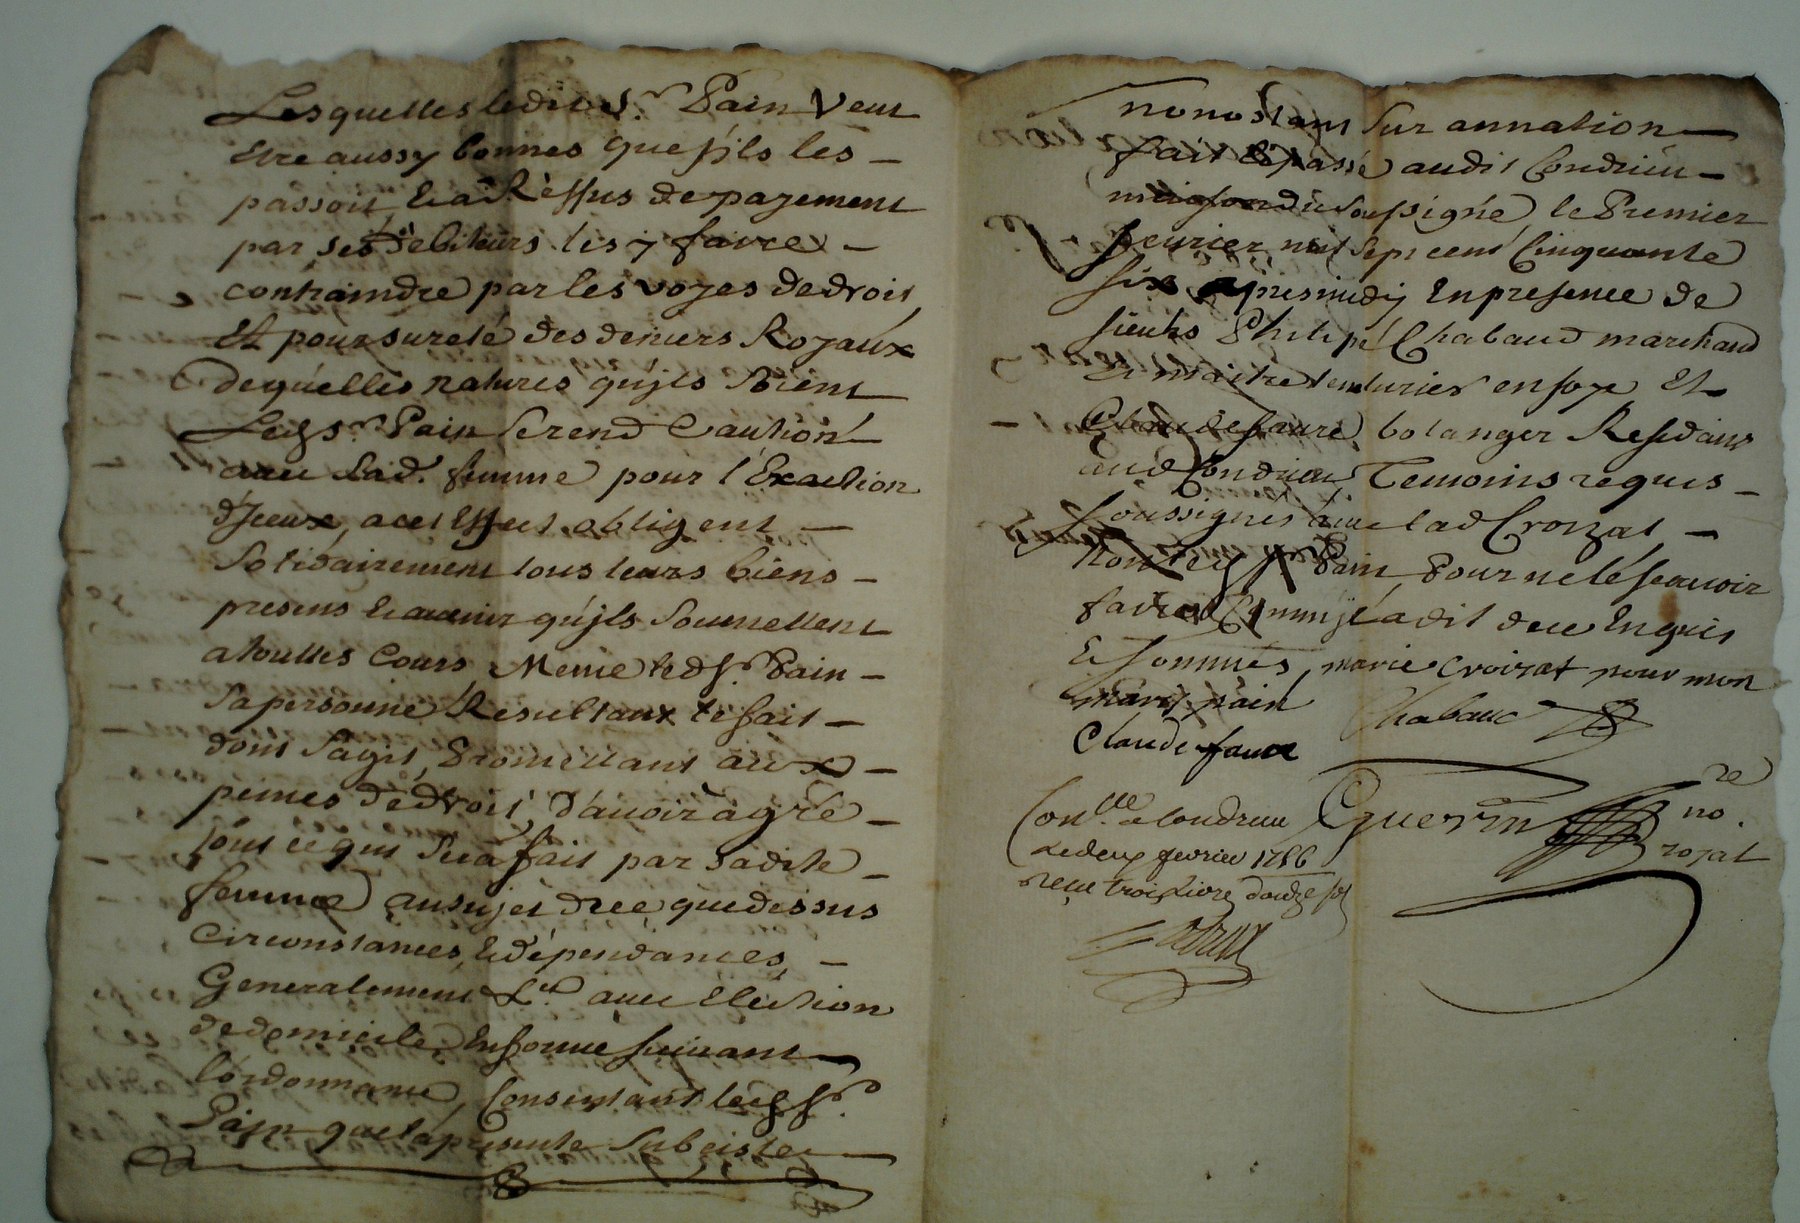 Lesquelles ledit Sr. Pain Veut
Etre aussy bonnes que s'ils les
passoit, Et a Reffus de payement
par ses debiteurs les y faire
contraindre par les voyes de droit
Et pour sureté des deniers Royaux
de quelles natures qu'jls Soient
Led Sr. Pain Se rend Caution
avec Sad. femme pour l'Exaction
d'Jceux, a cet Effect obligent
Solidairement tous leurs biens
presens Et avenir qu'jls Soumettent
a touttes Cours, Meme led Sr. Pain
Sa personne Resultant le fait
dont S'agit, Promettant aux
peines de droit, d'avoir agrée
tout ce que Sera fait par sadite
femme au sujet de ce que dessus
Circonstances, Et dépendances,
Generalement &a. avec Election
de domicile En forme Suivant
l'ordonnance, Consentant led Sr.
Pain que la presente Subciste
nonostant Surannation
fait & passé audit Condrieu
maison du Soussigné, le Premier
fevrier mil Sept cent Cinquante
Six apres midy En presence de
Sieurs Philipe Chabaud marchand
Et maitre tenturier en soye Et
Claude faure bolanger Residants
aud Condrieu Temoins requis
Soussignés avec lad Croizat
non led Sr Pain Pour ne le scavoir
faire a dit de ce Enquis
Et Sommés, marie croizat pour mon
maris pain
Chabaud
Claude faure
Conlle a Condrieu
le deux fevrier 1756
reçu trois Livre douze sol
Guerin
no.re
royal